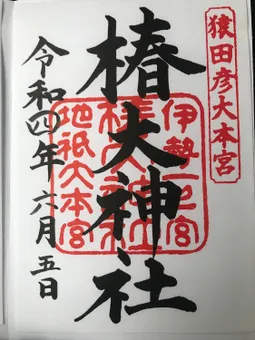 猿田彦大本宮
椿大神社
伊勢一之宮
椿大神社
地祇大本宮
令和四年六月五日